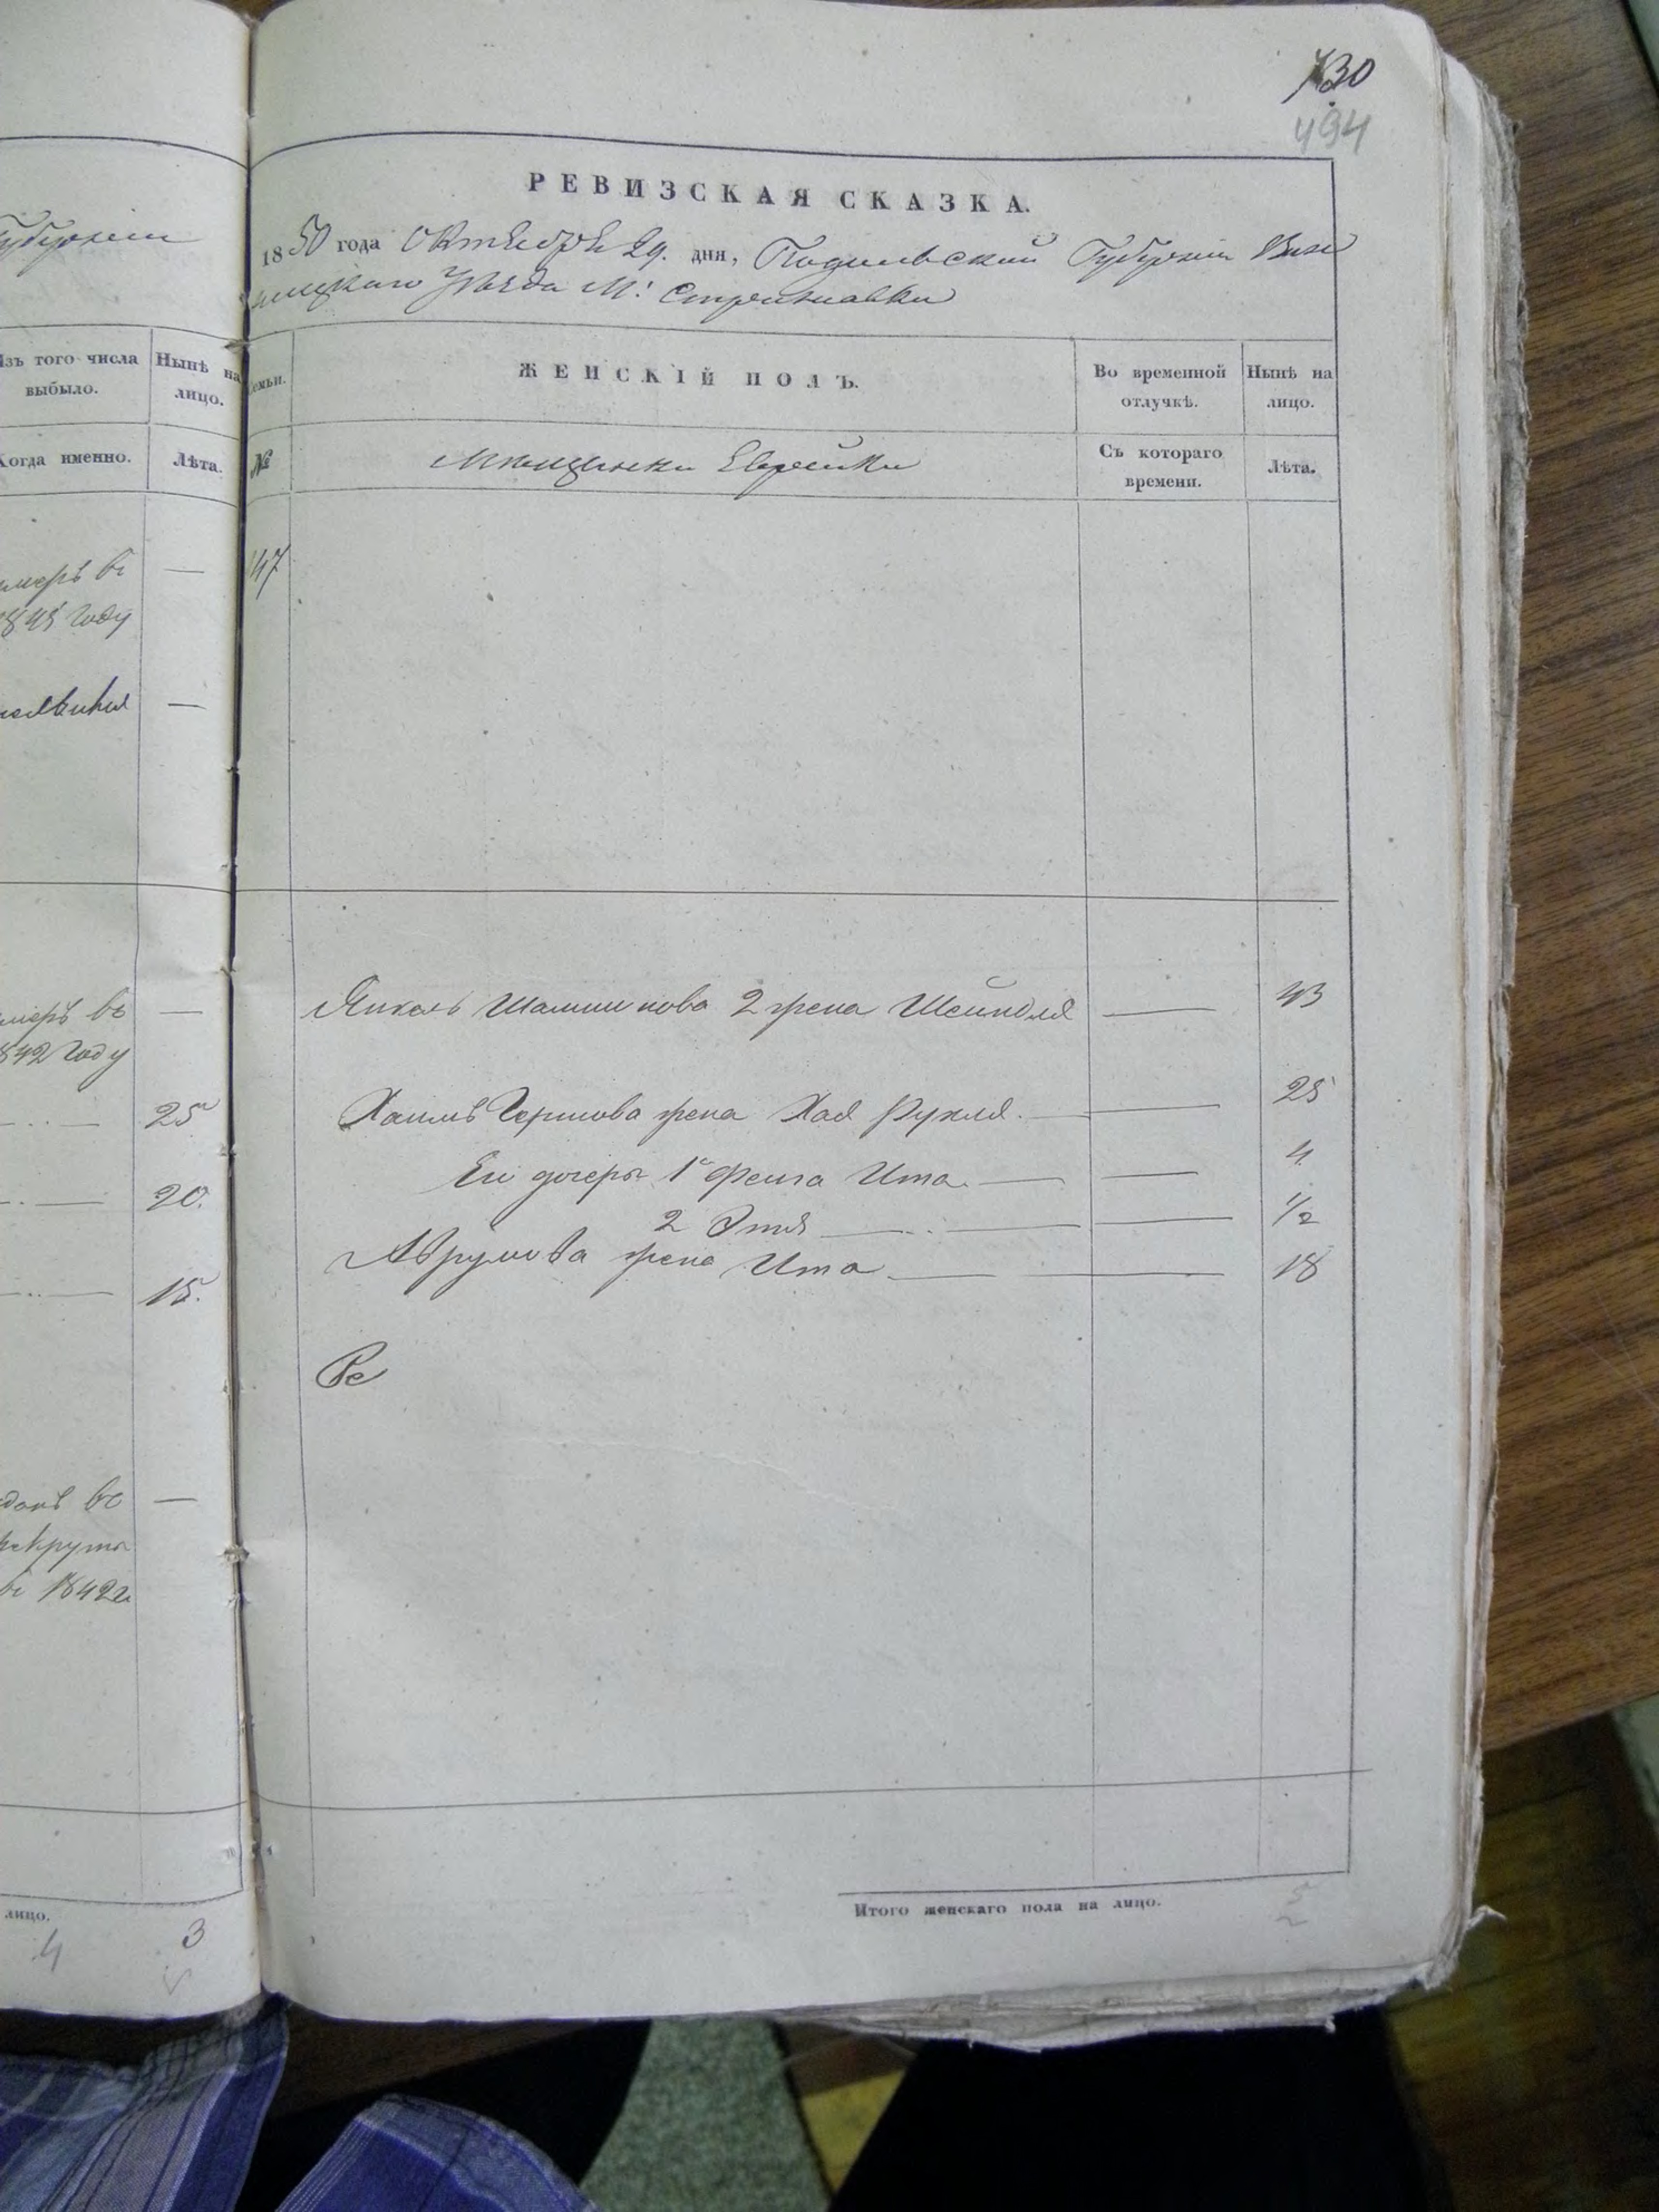 730
494
Губерніи
РЕВИЗСКАЯ СКАЗКА.
1850 года Октября 29. дня, Подольской Губерніи Вин
ницкаго Уѣзда М: Стрижавки
Изъ того числа выбыло.
Нынѣ на лицо.
Когда именно.
Лѣта.
Семьи.
ЖЕНСКІЙ ПОЛЪ.
Во временной отлучкѣ.
Нынѣ на лицо.
№
Мѣщанки Еврейки
Съ котораго времени.
Лѣта.
умеръ въ —
1845 году
47
—
умеръ въ —
1842 году
25
20.
15.
данъ въ —
рекруты
въ 1842 г
Янкель Шмишкова 2 жена Шейндля — 43
Хаимъ Гершкова жена Хая Рухля. — 25
Ей дочеры 1я Фейга Ита. — 4
2 Этя — 1/2
Аврумова жена Ита — 18
Ре
лицо.
4 3
Итого женскаго пола на лицо.
5
2